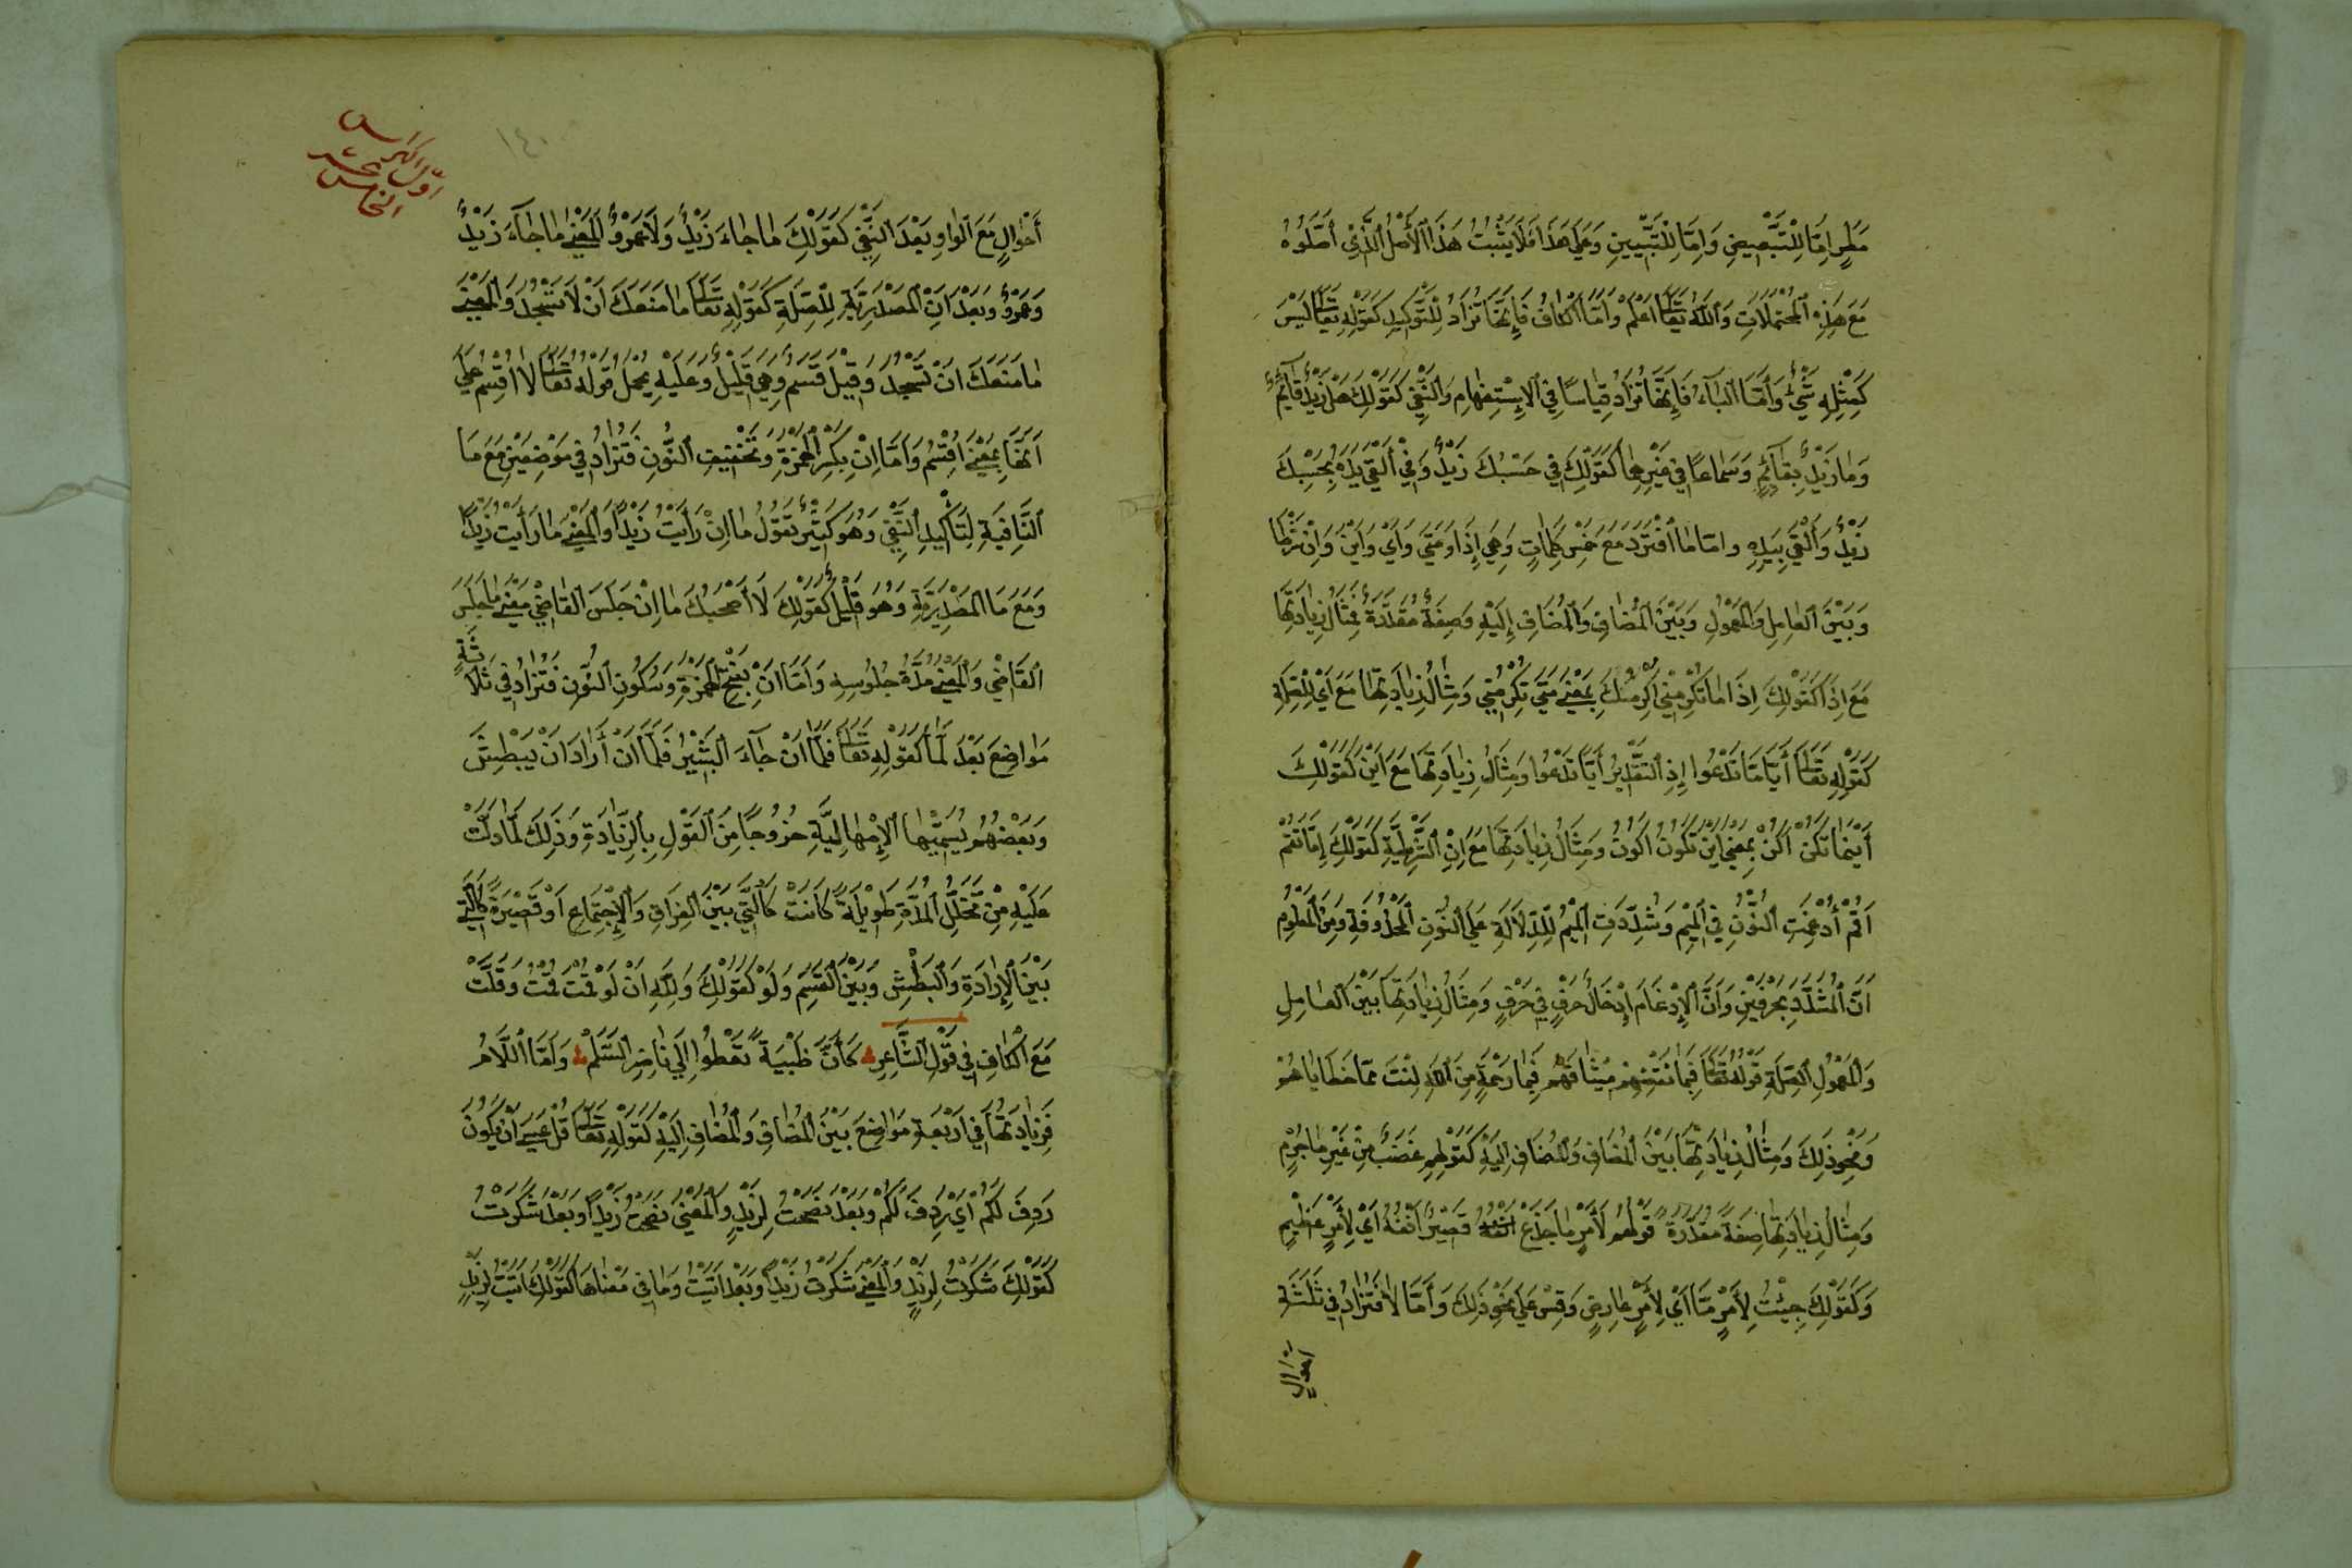 مَطَرٍ اِمَّا لِلتَّبْعِيضِ وَاِمَّا لِلتَّبْيِينِ وَعَلَى هَذَا فَلَا يَثْبُتُ هَذَا الْأَصْلُ الَّذِي أَصَّلُوهُ
مَعَ هَذِهِ الْمُحْتَمَلَاتِ وَاللّٰهُ تَعَالَى اَعْلَمُ وَاَمَّا الْكَافُ فَاِنَّهَا تُزَادُ لِلتَّوْكِيدِ كَقَوْلِهِ تَعَالَى لَيْسَ
كَمِثْلِهِ شَيْءٌ وَاَمَّا الْبَاءُ فَاِنَّهَا تُزَادُ قِيَاسًا فِي الْاِسْتِفْهَامِ وَالنَّفْيِ كَقَوْلِكَ هَلْ زَيْدٌ قَائِمٌ
وَمَا زَيْدٌ بِقَائِمٍ وَسَمَاعًا فِي غَيْرِهِمَا كَقَوْلِكَ فِي حَسْبُكَ زَيْدٌ وَفِي أَلْقَى يَدَهُ بِحَسْبِكَ
زَيْدٌ وَأَلْقَى بِيَدِهِ وامّا مَا فَتَرِدُ مَعَ خَمْسِ كَلِمَاتٍ وَهِيَ إِذَا وَمَتَى وَأَيّ وَاَيْنَ وَاِنْ شَرْطًا
وَبَيْنَ الْعَامِلِ وَالْمَعْمُولِ وَبَيْنَ الْمُضَافِ وَالْمُضَافِ إِلَيْهِ وَصِفَةً مُقَدَّرَةً فَمِثَالُ زِيَادَتِهَا
مَعَ اِذَا كَقَوْلِكَ اِذَا مَا تُكْرِمْنِي اُكْرِمْكَ بِمَعْنَى مَتَى تُكْرِمْنِي وَمِثَالُ زِيَادَتِهَا مَعَ اَيّ لِلصِّلَةِ
كَقَوْلِهِ تَعَالَى أَيًّا مَا تَدْعُوا إِذِ التَّقْدِيرُ أَيًّا تَدْعُوا وَمِثَالُ زِيَادَتِهَا مَعَ اَيْنَ كَقَوْلِكَ
أَيْنَمَا تَكُنْ اَكُنْ بِمَعْنَى اَيْنَ تَكُونُ اَكُونُ وَمِثَالُ زِيَادَتِهَا مَعَ اِنِ الشَّرْطِيَّةِ كَقَوْلِكَ اِمَّا تَقُمْ
اَقُمْ أُدْغِمَتِ النُّونُ فِي الْمِيمِ وَشُدِّدَتِ الْمِيمُ لِلدَّلَالَةِ عَلَى النُّونِ الْمَحْذُوفَةِ وَمِنَ الْمَعْلُومِ
اَنَّ الْمُشَدَّدَ بِحَرْفَيْنِ وَاَنَّ الْإِدْغَامَ إِدْخَالُ حَرْفٍ فِي حَرْفٍ وَمِثَالُ زِيَادَتِهَا بَيْنَ الْعَامِلِ
وَالْمَعْمُولِ الصِّلَةِ قَوْلُهُ تَعَالَى فَبِمَا نَقْضِهِمْ مِيثَاقَهُمْ فَبِمَا رَحْمَةٍ مِنَ اللّٰهِ لِنْتَ مِمَّا خَطَايَاهُمْ
وَنَحْوِ ذَلِكَ وَمِثَالُ زِيَادَتِهَا بَيْنَ الْمُضَافِ وَالْمُضَافِ اِلَيْهِ كَقَوْلِهِمْ غَضِبَ مِنْ غَيْرِ مَا جُرْمٍ
وَمِثَالُ زِيَادَتِهَا صِفَةً مُقَدَّرَةً قَوْلُهُمْ لَأَمْرٍ مَا جَدَعَ قَصِيرٌ اَنْفَهُ اَيْ لِأَمْرٍ عَظِيمٍ
وَكَقَوْلِكَ جِئْتُ لِأَمْرٍ مَّا اَيْ لِأَمْرٍ عَارِضٍ وَقِسْ عَلَى نَحْوِ ذَلِكَ وَأَمَّا لَا فَتُزَادُ فِي ثَلَثَةِ
احوالٍ
اوّل الكراس
الخامس عشر
١٤٠
أَحْوَالٍ مَعَ الْوَاوِ بَعْدَ النَّفْيِ كَقَوْلِكَ مَا جَاءَ زَيْدٌ وَلَا عَمْرٌو اَلْمَعْنَى مَا جَاءَ زَيْدٌ
وَعَمْرٌو وَبَعْدَ اَنِ الْمَصْدَرِيَّةِ لِلصِّلَةِ كَقَوْلِهِ تَعَالَى مَا مَنَعَكَ اَنْ لَا تَسْجُدَ وَالْمَعْنَى
مَا مَنَعَكَ اَنْ تَسْجُدَ وَقِيلَ قَسَمٌ وَهِيَ قَلِيلٌ وَعَلَيْهِ يُحْمَلُ قَوْلُهُ تَعَالَى لَا اُقْسِمُ عَلَى
اَنَّهَا بِمَعْنَى اُقْسِمُ وَاَمَّا اِنْ بِكَسْرِ الْهَمْزَةِ وَتَخْفِيفِ النُّونِ فَتُزَادُ فِي مَوْضِعَيْنِ مَعَ مَا
النَّافِيَةِ لِتَأْكِيدِ النَّفْيِ وَهُوَ كَثِيرٌ تَقُولُ مَا اِنْ رَأَيْتُ زَيْدًا وَالْمَعْنَى مَا رَأَيْتُ زَيْدًا
وَمَعَ مَا الْمَصْدَرِيَّةِ وَهُوَ قَلِيلٌ كَقَوْلِكَ لَا أَصْحَبُكَ مَا اِنْ جَلَسَ الْقَاضِي مَعْنَى مَا جَلَسَ
الْقَاضِي وَالْمَعْنَى مُدَّةَ جُلُوسِهِ وَاَمَّا اَنْ بِفَتْحِ الْهَمْزَةِ وَسُكُونِ النُّونِ فَتُزَادُ فِي ثَلَاثَةِ
مَوَاضِعَ بَعْدَ لَمَّا كَقَوْلِهِ تَعَالَى فَلَمَّا اَنْ جَاءَ الْبَشِيرُ فَلَمَّا اَنْ أَرَادَ اَنْ يَبْطِشَ
وَبَعْضُهُمْ يُسَمِّيهَا الْإِمْهَالِيَّةِ خُرُوجًا مِنَ الْقَوْلِ بِالزِّيَادَةِ وَذَلِكَ لَمَّا دَلَّتْ
عَلَيْهِ مِنْ تَخَلُّلِ الْمُدَّةِ طَوِيلَةً كَانَتْ كَالَّتِي بَيْنَ الْفِرَاقِ وَالْاِجْتِمَاعِ اَوْ قَصِيرَةً كَالَّتِي
بَيْنَ الْإِرَادَةِ وَالْبَطْشِ وَبَيْنَ الْقَسَمِ وَلَوْ كَقَوْلِكَ وَاللّٰهِ اَنْ لَوْ قُمْتَ قُمْتُ وَقَلَّتْ
مَعَ الْكَافِ فِي قَوْلِ الشَّاعِرِ كَأَنْ ظَبْيَةً تَعْطُوا اِلَى نَاضِرِ السَّلَمْ وَاَمَّا اللَّامُ
فَزِيَادَتُهَا فِي اَرْبَعَةِ مَوَاضِعَ بَيْنَ الْمُضَافِ وَالْمُضَافِ اِلَيْهِ كَقَوْلِهِ تَعَالَى قُلْ عَسَى اَنْ يَكُونَ
رَدِفَ لَكُمْ اَيْ رَدِفَكُمْ وَبَعْدَ نَصَحْتُ لِزَيْدٍ وَالْمَعْنَى نَصَحْتُ زَيْدًا وَبَعْدَ شَكَرْتُ
كَقَوْلِكَ شَكَرْتُ لِزَيْدٍ وَالْمَعْنَى شَكَرْتُ زَيْدًا وَبَعْدَ اَتَيْتُ وَمَا فِي مَعْنَاهَا كَقَوْلِكَ اَتَيْتُ لِزَيْدٍ